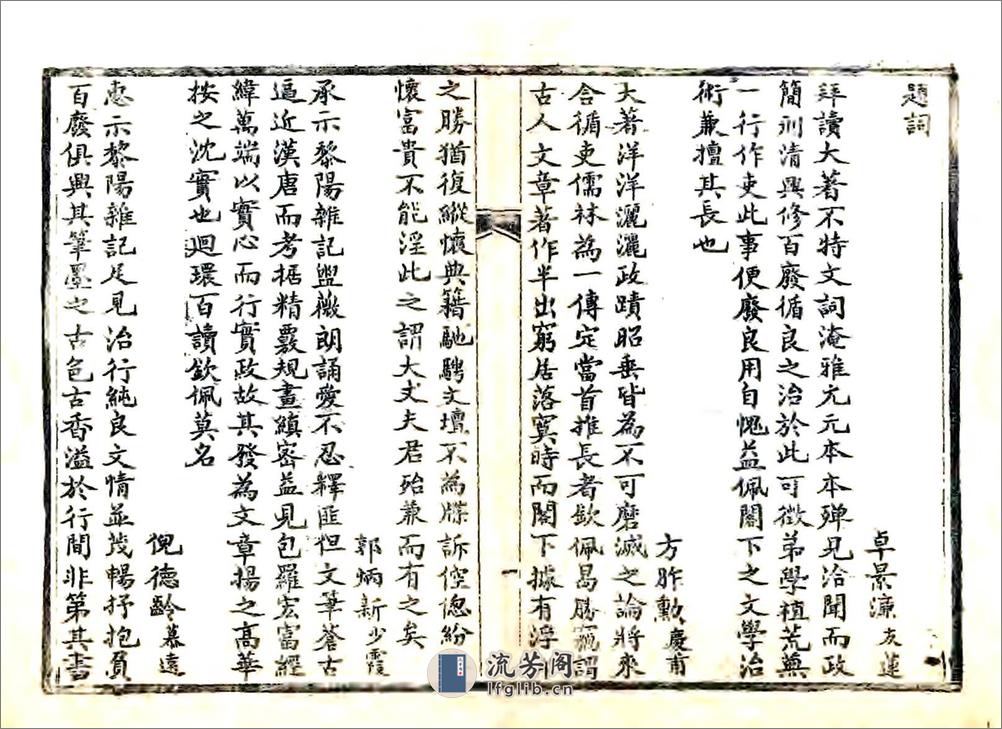 題詞
卓景濂友蓮
拜讀大著不特文詞淹雅元元本本殫見洽聞而政
簡刑清興修百廢循良之治於此可徵弟學植荒蕪
一行作吏此事便廢良用自愧益佩閣下之文學治
術兼擅其長也
方胙勲慶甫
大著洋洋灑灑政蹟昭垂皆為不可磨滅之論將來
合循吏儒林為一傳定當首推長者欽佩曷勝竊謂
古人文章著作半出窮居落寞時而閣下據有浮
之勝猶復縱懷典籍馳騁文壇不為牒訴倥偬紛
懷富貴不能淫此之謂大丈夫君殆兼而有之矣
郭炳新少霞
承示黎陽雜記盥薇朗誦愛不忍釋匪但文筆蒼古
逼近漢唐而考据精覈規畫縝密益見包羅宏富經
緯萬端以實心而行實政故其發為文章揚之高華
按之沈實也迴環百讀欽佩莫名
倪德齡慕遠
惠示黎陽雜記足見治行純良文情並茂暢抒抱負
百廢俱興其筆墨之古色古香溢於行間非第其書
一
流芳阁
lfglib.cn